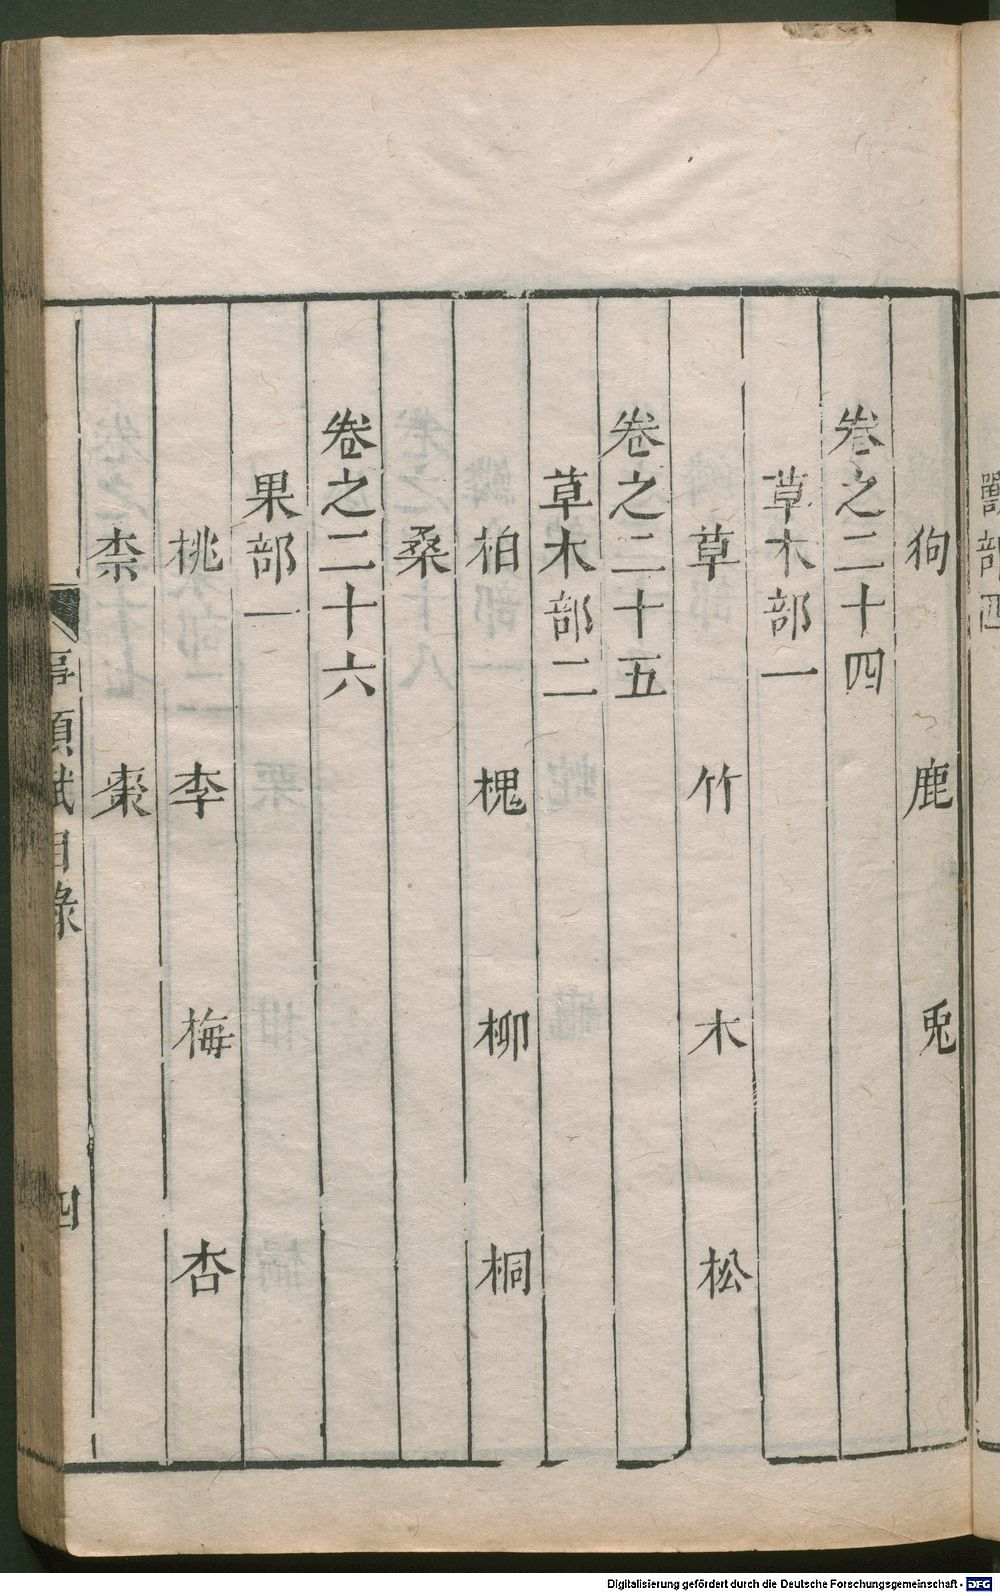 獸部四
狗 鹿 兎
卷之二十四
草木部一
草 竹 木 松
卷之二十五
草木部二
柏 槐 柳 桐
桑
卷之二十六
果部一
桃 李 梅 杏
柰 棗
事類賦目錄 四
Digitalisierung gefördert durch die Deutsche Forschungsgemeinschaft - DFG